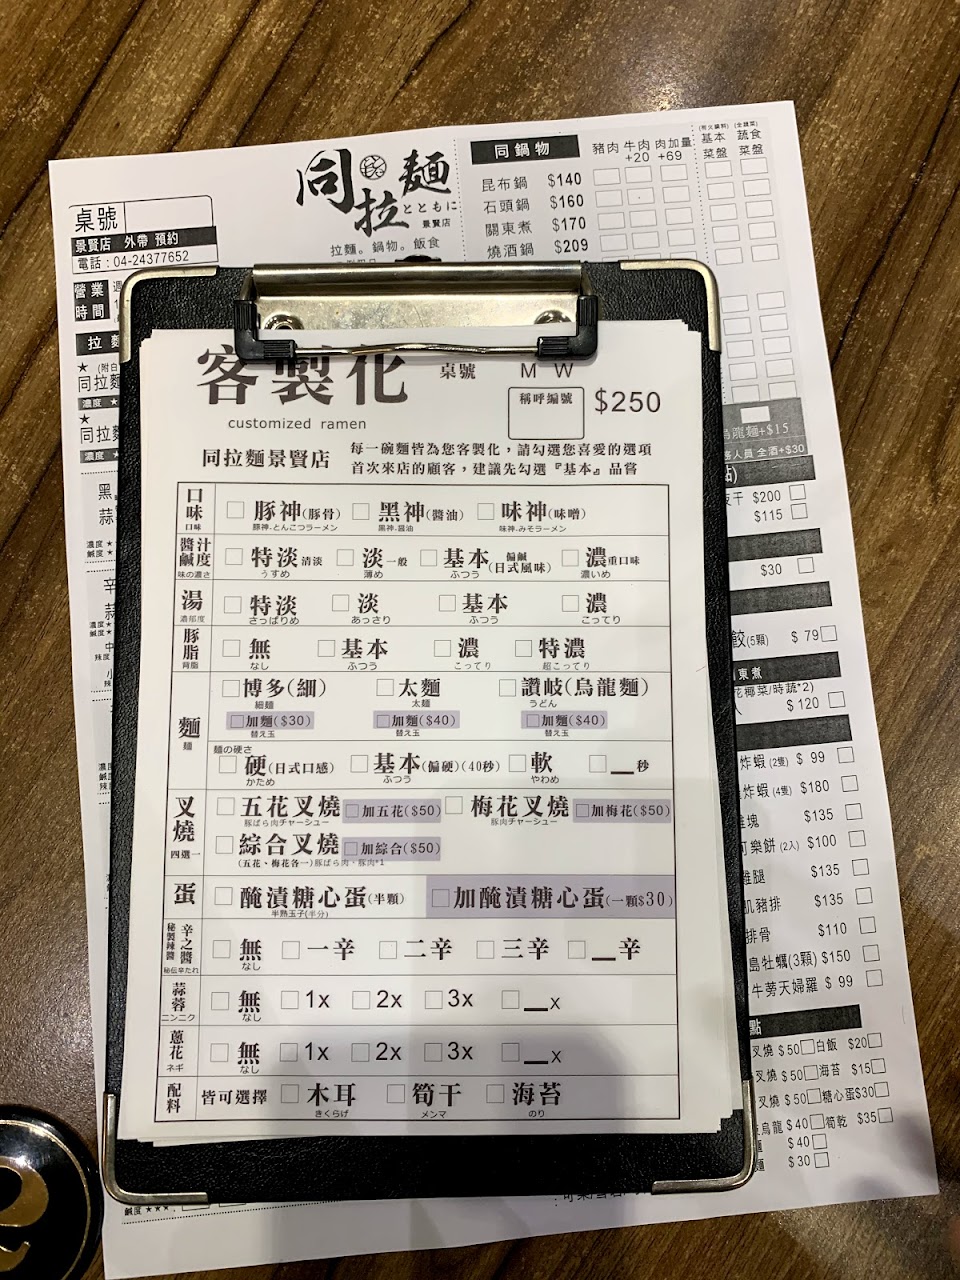 同拉麵
とともに
景賢店
拉麵。鍋物。飯食
桌號
景賢店 外帶 預約
電話：04-24377652
營業
時間
拉麵
★
同拉麵
濃度
★
同拉麵
濃度
同鍋物
豬肉 牛肉 肉加量
+20 +69
基本 蔬食
菜盤 菜盤
昆布鍋 $140
石頭鍋 $160
關東煮 $170
燒酒鍋 $209
烏龍麵+$15
$200
$115
$30
餃(5顆) $79
東煮
花椰菜/時蔬*2)
$120
炸蝦(2隻) $99
炸蝦(4隻) $180
$135
可樂餅(2入) $100
雞腿 $135
豬排 $135
排骨 $110
島牡蠣(3顆) $150
牛蒡天婦羅 $99
點
叉燒 $50 白飯 $20
叉燒 $50 海苔 $15
叉燒 $50 糖心蛋 $30
烏龍 $40 筍乾 $35
麵 $40
麵 $30
客製化
customized ramen
桌號 M W
稱呼編號
$250
同拉麵景賢店
每一碗麵皆為您客製化，請勾選您喜愛的選項
首次來店的顧客，建議先勾選『基本』品嘗
口味
口味
豚神(豚骨) 黑神(醬油) 味神(味噌)
豚神-とんこつラーメン 黑神-醤油 味神-みそラーメン
醬汁鹹度
味の濃さ
特淡清淡 淡一般 基本偏鹹(日式風味) 濃重口味
うすめ 薄め ふつう 濃いめ
湯
濃郁度
特淡 淡 基本 濃
さっぱりめ あっさり ふつう こってり
豚脂
背脂
無 基本 濃 特濃
なし ふつう こってり 超こってり
麵
麺
博多(細) 太麵 讚岐(烏龍麵)
細麺 太麺 うどん
加麵($30) 加麵($40) 加麵($40)
替え玉 替え玉 替え玉
麺の硬さ
硬(日式口感) 基本(偏硬)(40秒) 軟 __秒
かため ふつう やわめ
叉燒
四選一
五花叉燒 加五花($50) 梅花叉燒 加梅花($50)
豚ばら肉チャーシュー 豚肉チャーシュー
綜合叉燒 加綜合($50)
(五花、梅花各一)豚ばら肉、豚肉*1
蛋
醃漬糖心蛋(半顆) 加醃漬糖心蛋(一顆$30)
半熟玉子(半分)
辛之醬
秘製辣醬
秘伝辛たれ
無 一辛 二辛 三辛 __辛
なし
蒜蓉
ニンニク
無 1x 2x 3x __x
なし
蔥花
ネギ
無 1x 2x 3x __x
なし
配料
皆可選擇 木耳 筍干 海苔
きくらげ メンマ のり
鹹度★★★